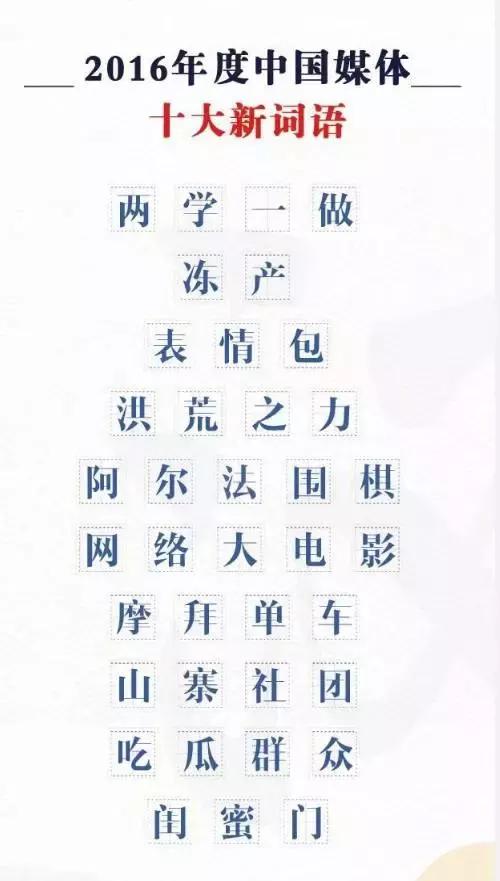 2016年度中国媒体
十大新词语
两学一做
冻产
表情包
洪荒之力
阿尔法围棋
网络大电影
摩拜单车
山寨社团
吃瓜群众
闺蜜门